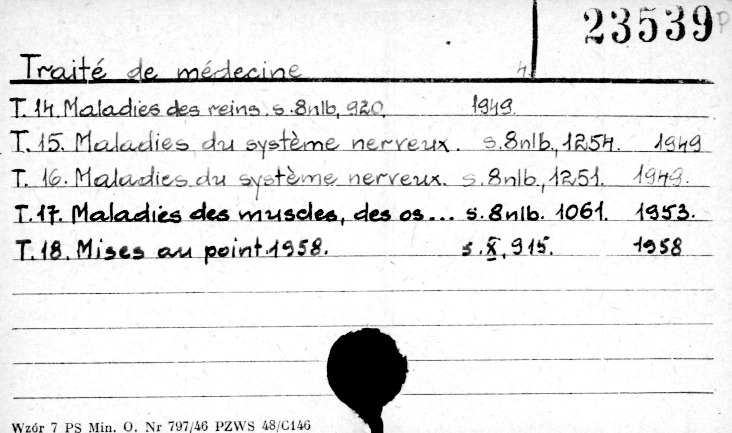 23539 P
Traité de médecine 4.
T. 14. Maladies des reins. s. 8nlb, 920, 1949.
T. 15. Maladies du système nerveux. s. 8nlb., 1254. 1949
T. 16. Maladies du système nerveux. s. 8nlb., 1251. 1949.
T. 17. Maladies des muscles, des os... s. 8nlb. 1061. 1953.
T. 18. Mises au point 1958. s. X, 915. 1958
Wzór 7 PS Min. O. Nr 797/46 PZWS 48/C146